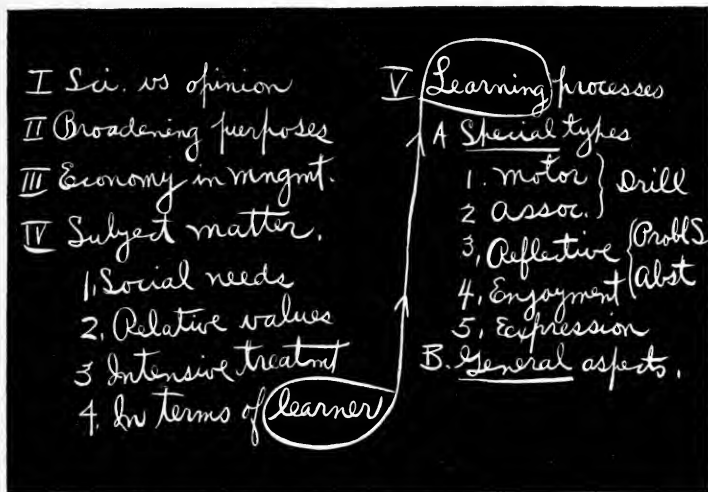 I Sci. vs opinion
II Broadening purposes
III Economy in mngmt.
IV Subject matter.
1. Social needs
2. Relative values
3 Intensive treatmt
4. In terms of learner
V Learning processes
A Special types
1. Motor } Drill
2 Assoc.
3. Reflective { Probl S
4. Enjoyment Abst
5. Expression
B. General aspects.